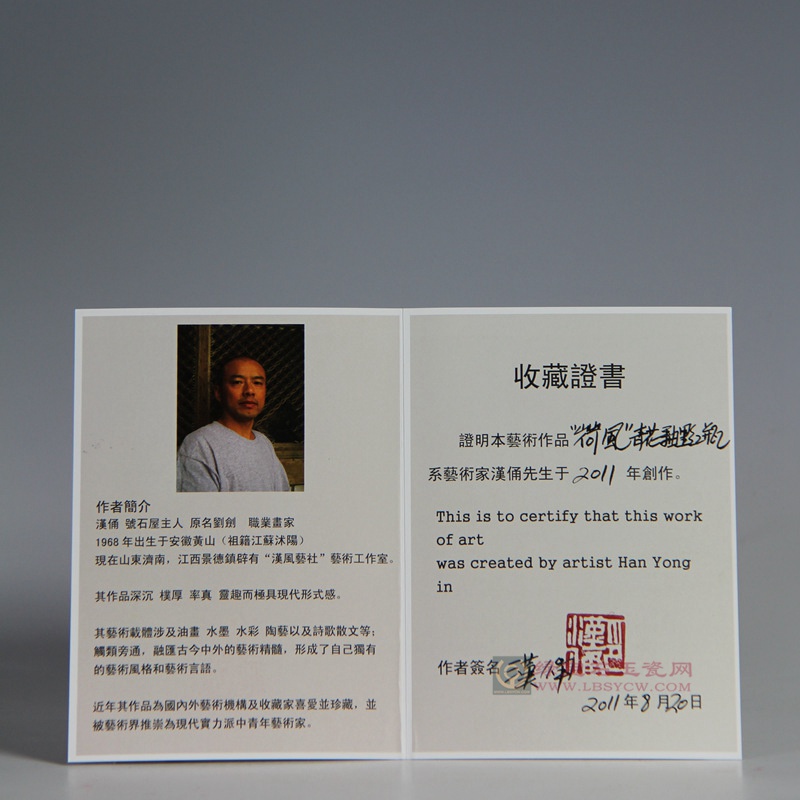 作者簡介
漢俑 號石屋主人 原名劉劍 職業畫家
1968年出生于安徽黃山（祖籍江蘇沭陽）
現在山東濟南，江西景德鎮辟有“漢風藝社”藝術工作室。
其作品深沉 樸厚 率真 靈趣而極具現代形式感。
其藝術載體涉及油畫 水墨 水彩 陶藝以及詩歌散文等；
觸類旁通，融匯古今中外的藝術精髓，形成了自己獨有
的藝術風格和藝術言語。
近年其作品為國內外藝術機構及收藏家喜愛並珍藏，並
被藝術界推崇為現代實力派中青年藝術家。
收藏證書
證明本藝術作品“荷風”青花
系藝術家漢俑先生于 2011 年創作。
This is to certify that this work
of art
was created by artist Han Yong
in
作者簽名 漢俑
玉瓷网
WWW.LBSYCW.COM
2011年8月20日